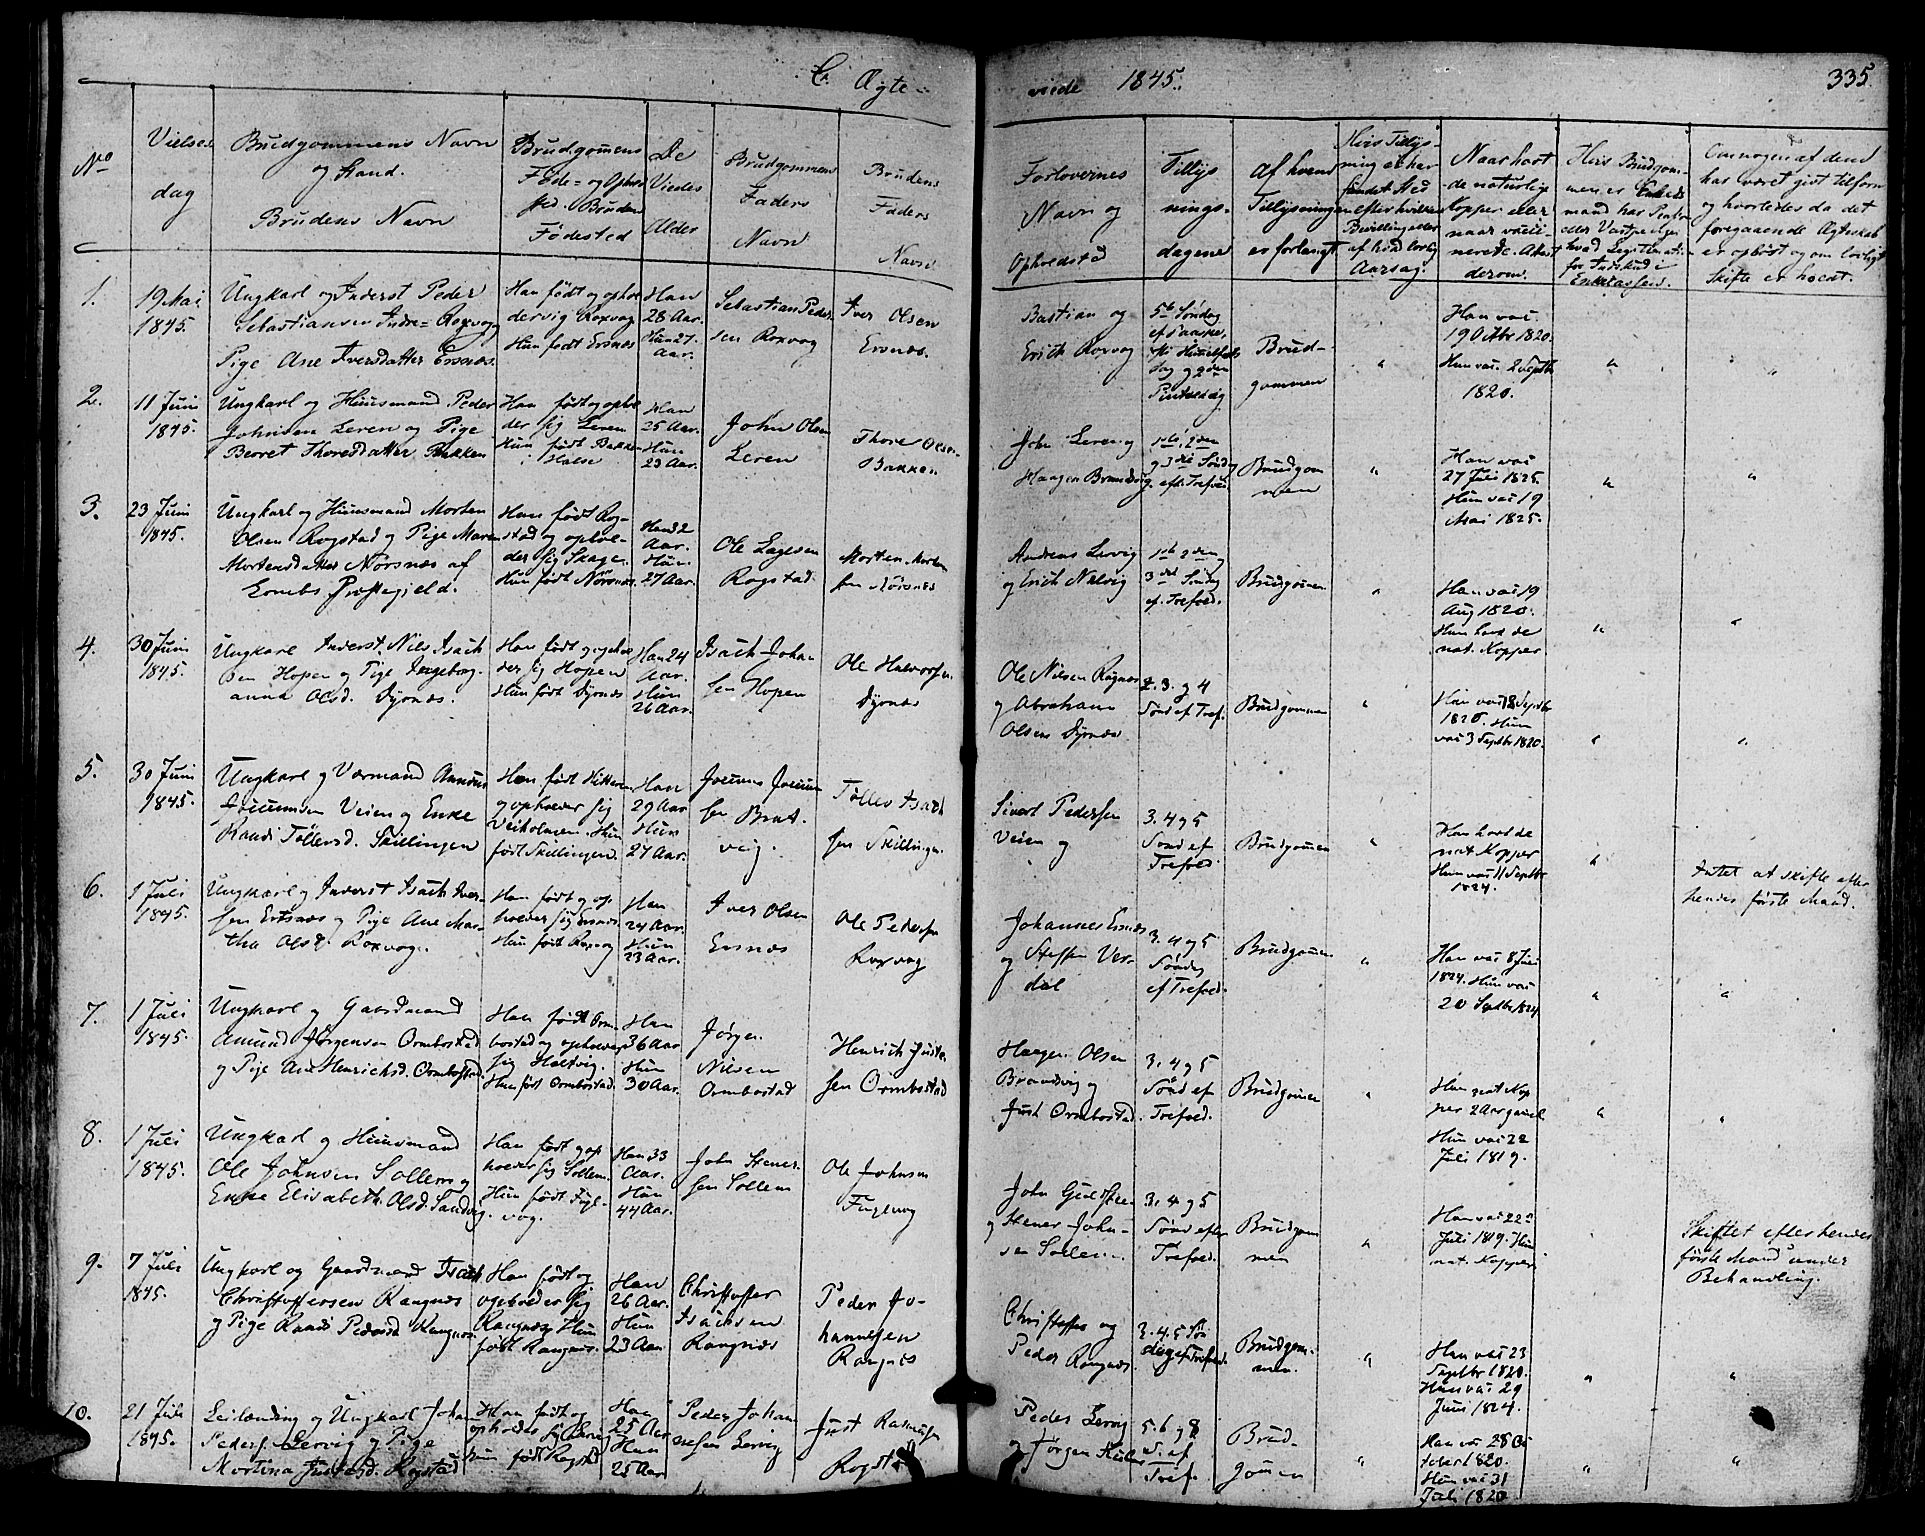 C. Ægte-
viede 1845.
335.
No
Vielses
dag
Brudgommens Navn
og Stand.
Brudens Navn
Brudgomens
Føde= og Ophol
sted. Brudens
Fødested
De
Viedes
Alder
Brudgommens
Faders
Navn
Brudens
Faders
Navn
Forlovernes
Navn og
Opholdsted
Tillys
nings-
dagene
Af hvem
Tillysningen
er forlangt
Hvis Tillys-
ning ei har
fundet Sted
efter hvilken
Bevilling eller
af hvad lovlig
Aarsag.
Naar havt
de naturlige
Kopper eller
naar vacci-
nerede. Attest
derom.
Hvis Brudgom-
men er Enke-
mand har
hvad Legitimation
for Indskud i
Enkekassen.
Om nogen af dem
har været gift tilforn
og hvorledes da det
foregaaende Ægteskab
er opløst og om lovligt
Skifte er holdt.
1.
19 Mai
1845.
Ungkarl og Inderst Peder
Sebastiansen Indre=Roxvog
Pige Ane Iversdatter Ersnæs.
Han født og ophol
der sig Roxvog
Hun født Ersnæs
Han
28 Aar.
Hun 27
Aar.
Sebastian Peder-
sen Roxvog
Iver Olsen
Ersnæs.
Bastian og
Erich Roxvog
5te Søndag
ef. Paaske,
Pintsedag
Brud-
gommen
"
Han vac.
19 Octbr 1820.
Hun vac. 2 Septbr
1820.
"
"
2.
11 Juni
1845.
Ungkarl og Huusmand Peder
Johnsen Leren og Pige
Beret Thoresdatter Bakken
Han født og ophol
der sig Leren
Hun født Bakken
i Halse
Han
25 Aar.
Hun
23 Aar.
John Olsen
Leren
Thore Olsen
Bakken
John Leren og
Haagen Brandvig
1ste, 2den
og 3die Sønd
g. eft. Trefold.
Brudgom
men
"
Han vac
27 Juli 1825.
Hun vac 19
Mai 1825.
"
"
3.
23 Juni
1845.
Ungkarl og Huusmand Morten
Olsen Rogstad og Pige Maren
Mortensdatter Nørsnæs af
Præstegjeld.
Han født Rog-
stad og ophol-
der sig Skage.
Hun født Nørsnæs
Han 32
Aar.
Hun
27 Aar.
Ole Lagesen
Rogstad.
Morten Morten
sen Nørsnæs
Andreas Lervig
og Erich Nelvig
1ste 2den og
3die Søndag
ef. Trefold.
Brudgomen
"
Han vac 19
Aug 1820.
Hun havt de
nat. Kopper
"
"
4.
30 Juni
1845.
Ungkarl Inderst. Nils Isach
sen Hopen og Pige Ingeborg-
anna Olsd. Dyrnæs.
Han født og ophol
der sig Hopen
Hun født Dyrnæs
Han 24
Aar.
Hun
26 Aar.
Isach Johan
sen Hopen
Ole Halvorsen
Dyrnæs
Ole Nilsen Rognæs
og Abraham
Olsen Dyrnæs
2. 3. og 4
Sønd ef Tref.
Brudgommen
"
Han vac 18 Septbr
1820. Hun
vac 3 Septbr 1820.
"
"
5.
30 Juni
1845.
Ungkarl og Værmand
Veien og Enke
Randi Tøllevsd. Skillingen
Han født Hitteren
og opholder sig
Veiholmen. Hun
født Skillingen.
Han
29 Aar
Hun
27 Aar.
sen Brat-
veig.
Tøllev Isach
sen Skillingen.
Sivert Pedersen
Veien og
3. 4 og 5
Sønd ef
Trefold.
Brudgomen
"
Han havt de
nat Kopper
Hun vac 11 Septbr
1824.
"
Intet at skifte efter
hendes første Mand.
6.
1 Juli
1845.
Ungkarl og Inderst Isach Iver-
sen Ersnæs og Pige Ane Mar-
tha Olsd. Roxvog.
Han født og op-
holder sig Ersnæs
Hun født Roxvog
Han
24 Aar.
Hun
23 Aar.
Iver Olsen
Ersnæs
Ole Pedersen
Roxvog
Johannes Ersnæs
og Steffen Ver-
dal
3. 4 og 5
Søndg
ef Trefold.
Brudgomen
"
Han vac 8 Juli
1824. Hun vac
20 Septbr 1824
"
"
7.
1 Juli
1845.
Ungkarl og Gaardmand
Amund Jørgensen Ormbostad
og Pige Ane Henrichsd. Ormbostad
Han født Orm
bostad og opholder
sig Holtvig.
Hun født Ormbostad.
Han
36 Aar
Hun
30 Aar.
Jørgen
Nilsen
Ormbostad
Henrich Juste
sen Ormbostad
Haagen Olsen
Brandvig og
Just Ormbostad.
3. 4 og 5
Sønd ef
Trefold.
Brudgomen
"
Han nat Kop
per 2 Aar gammel
Hun vac 22
Juli 1819.
"
"
8.
1 Juli
1845.
Ungkarl og Huusmand
Ole Johnsen Sollem og
Enke Elisabeth Olsd. Sandvig.
Han født og op
holder sig Sollem.
Hun født Fugl-
vog.
Han 33
Aar.
Hun
44 Aar.
John Stener-
sen Sollem
Ole Johnsen
Fuglvog
John
og Stener John-
sen Sollem.
3. 4 og 5
Sønd efter
Trefold.
Brudgom
men
"
Han vac 22
Juli 1819. Hun
nat. Kopper
Skiftet efter hendes
første Mand under
Behandling.
9.
7 Juli
1845.
Ungkarl og Gaardmand Isach
Christoffersen Rangnæs
og Pige Randi Pedersd Rangnæs
Han født og
opholder sig
Rangnæs Hun
født Rangnæs.
Han
26 Aar.
Hun
23 Aar
Christoffer
Isachsen
Rangnæs
Peder Jo-
hannesen
Rangnæs
Christoffer og
Peder Rangnæs.
3. 4. 5 Søn
dag ef Trefold.
Brudgom-
men.
"
Han vac 23
Septbr 1820.
Hun vac 29
Juni 1824.
"
"
10.
21 Juli
1845.
Leilænding og Ungkarl Johan
Peders. Lervig og Pige
Martina Justesd. Rogstad
Han født og
opholder sig Lervig
Hun født Rogstad
Han
25 Aar
Hun
25 Aar
Peder Johan
nesen Lervig
Just Rasmusen
Rogstad
Peder Lervig
og Jørgen
5. 6 og 8
S. ef
Tref.
Brud-
gomen
"
Han vac 28 Oc
tober 1820.
Hun vac 31
Juli 1820
"
"